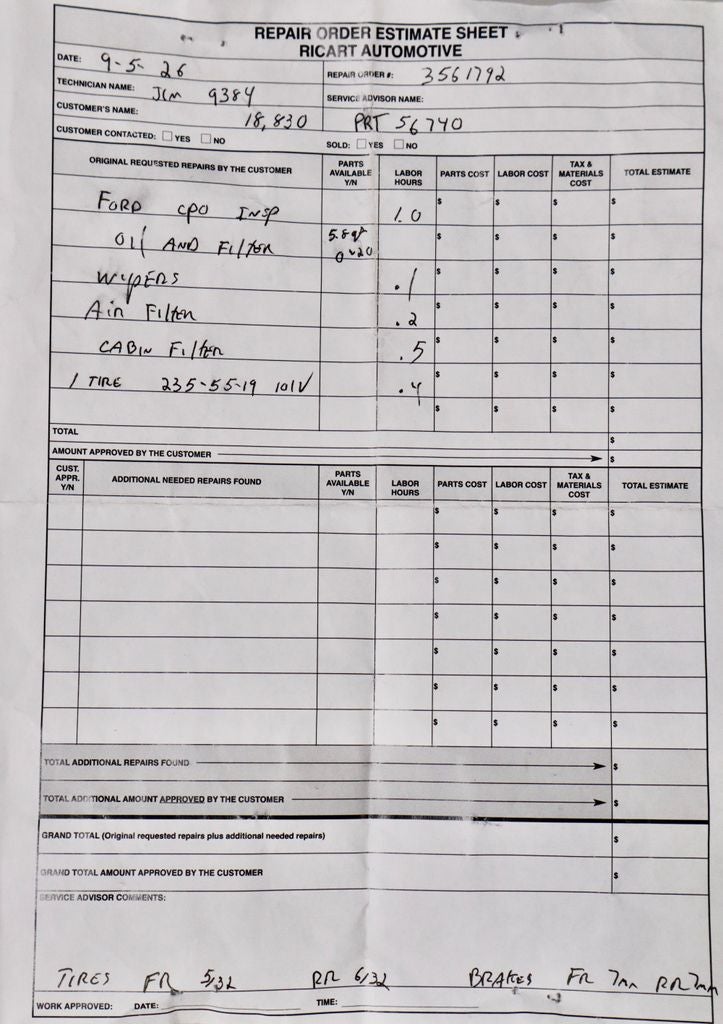 REPAIR ORDER ESTIMATE SHEET
RICART AUTOMOTIVE
DATE: 9-5-26 REPAIR ORDER #: 3561792
TECHNICIAN NAME: Jim 9384 SERVICE ADVISOR NAME:
CUSTOMER'S NAME: 18,830 PRT 56740
CUSTOMER CONTACTED: ☐ YES ☐ NO SOLD: ☐ YES ☐ NO
ORIGINAL REQUESTED REPAIRS BY THE CUSTOMER PARTS AVAILABLE Y/N LABOR HOURS PARTS COST LABOR COST TAX & MATERIALS COST TOTAL ESTIMATE
FORD CPO INSP 1.0 $ $ $ $
Oil AND Filter 5.8 qt 0w20 $ $ $ $
WypERS .1 $ $ $ $
Air Filter .2 $ $ $ $
CABIN Filter .5 $ $ $ $
1 TIRE 235-55-19 101V .4 $ $ $ $
$ $ $ $
TOTAL $
AMOUNT APPROVED BY THE CUSTOMER $
CUST. APPR. Y/N ADDITIONAL NEEDED REPAIRS FOUND PARTS AVAILABLE Y/N LABOR HOURS PARTS COST LABOR COST TAX & MATERIALS COST TOTAL ESTIMATE
$ $ $ $
$ $ $ $
$ $ $ $
$ $ $ $
$ $ $ $
$ $ $ $
$ $ $ $
TOTAL ADDITIONAL REPAIRS FOUND $
TOTAL ADDITIONAL AMOUNT APPROVED BY THE CUSTOMER $
GRAND TOTAL (Original requested repairs plus additional needed repairs) $
GRAND TOTAL AMOUNT APPROVED BY THE CUSTOMER $
SERVICE ADVISOR COMMENTS:
TIRES FR 5/32 RR 6/32 BRAKES FR 7mm RR 7mm
WORK APPROVED: DATE: TIME: